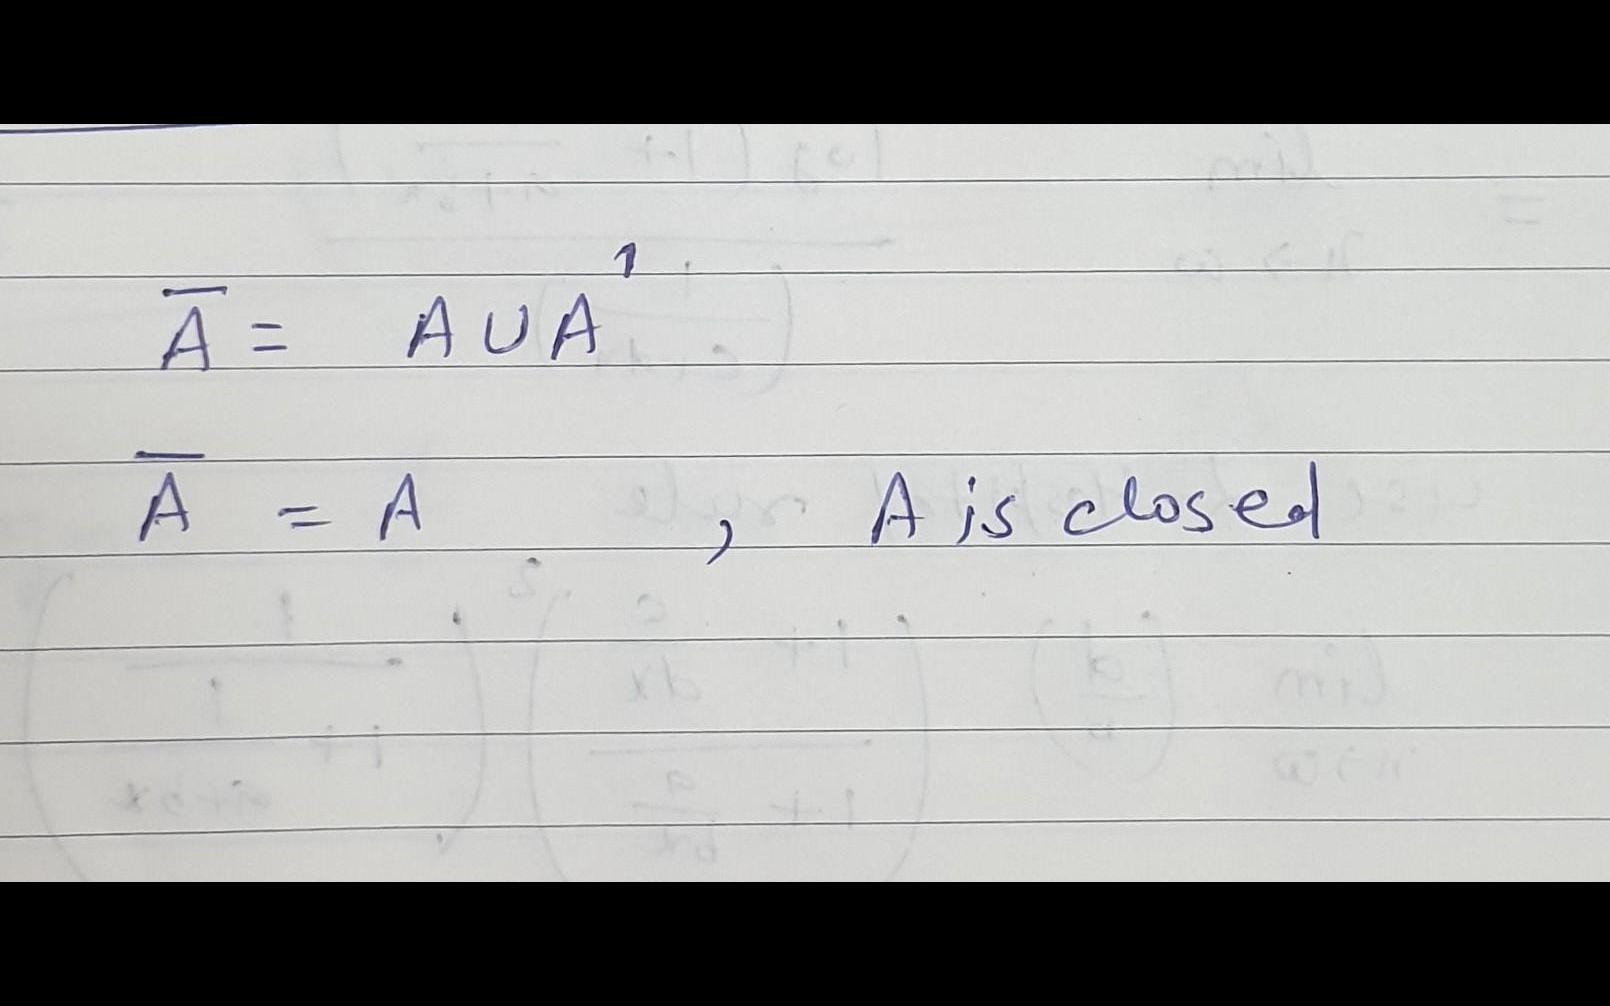 A̅ = A ∪ A'
A̅ = A , A is closed